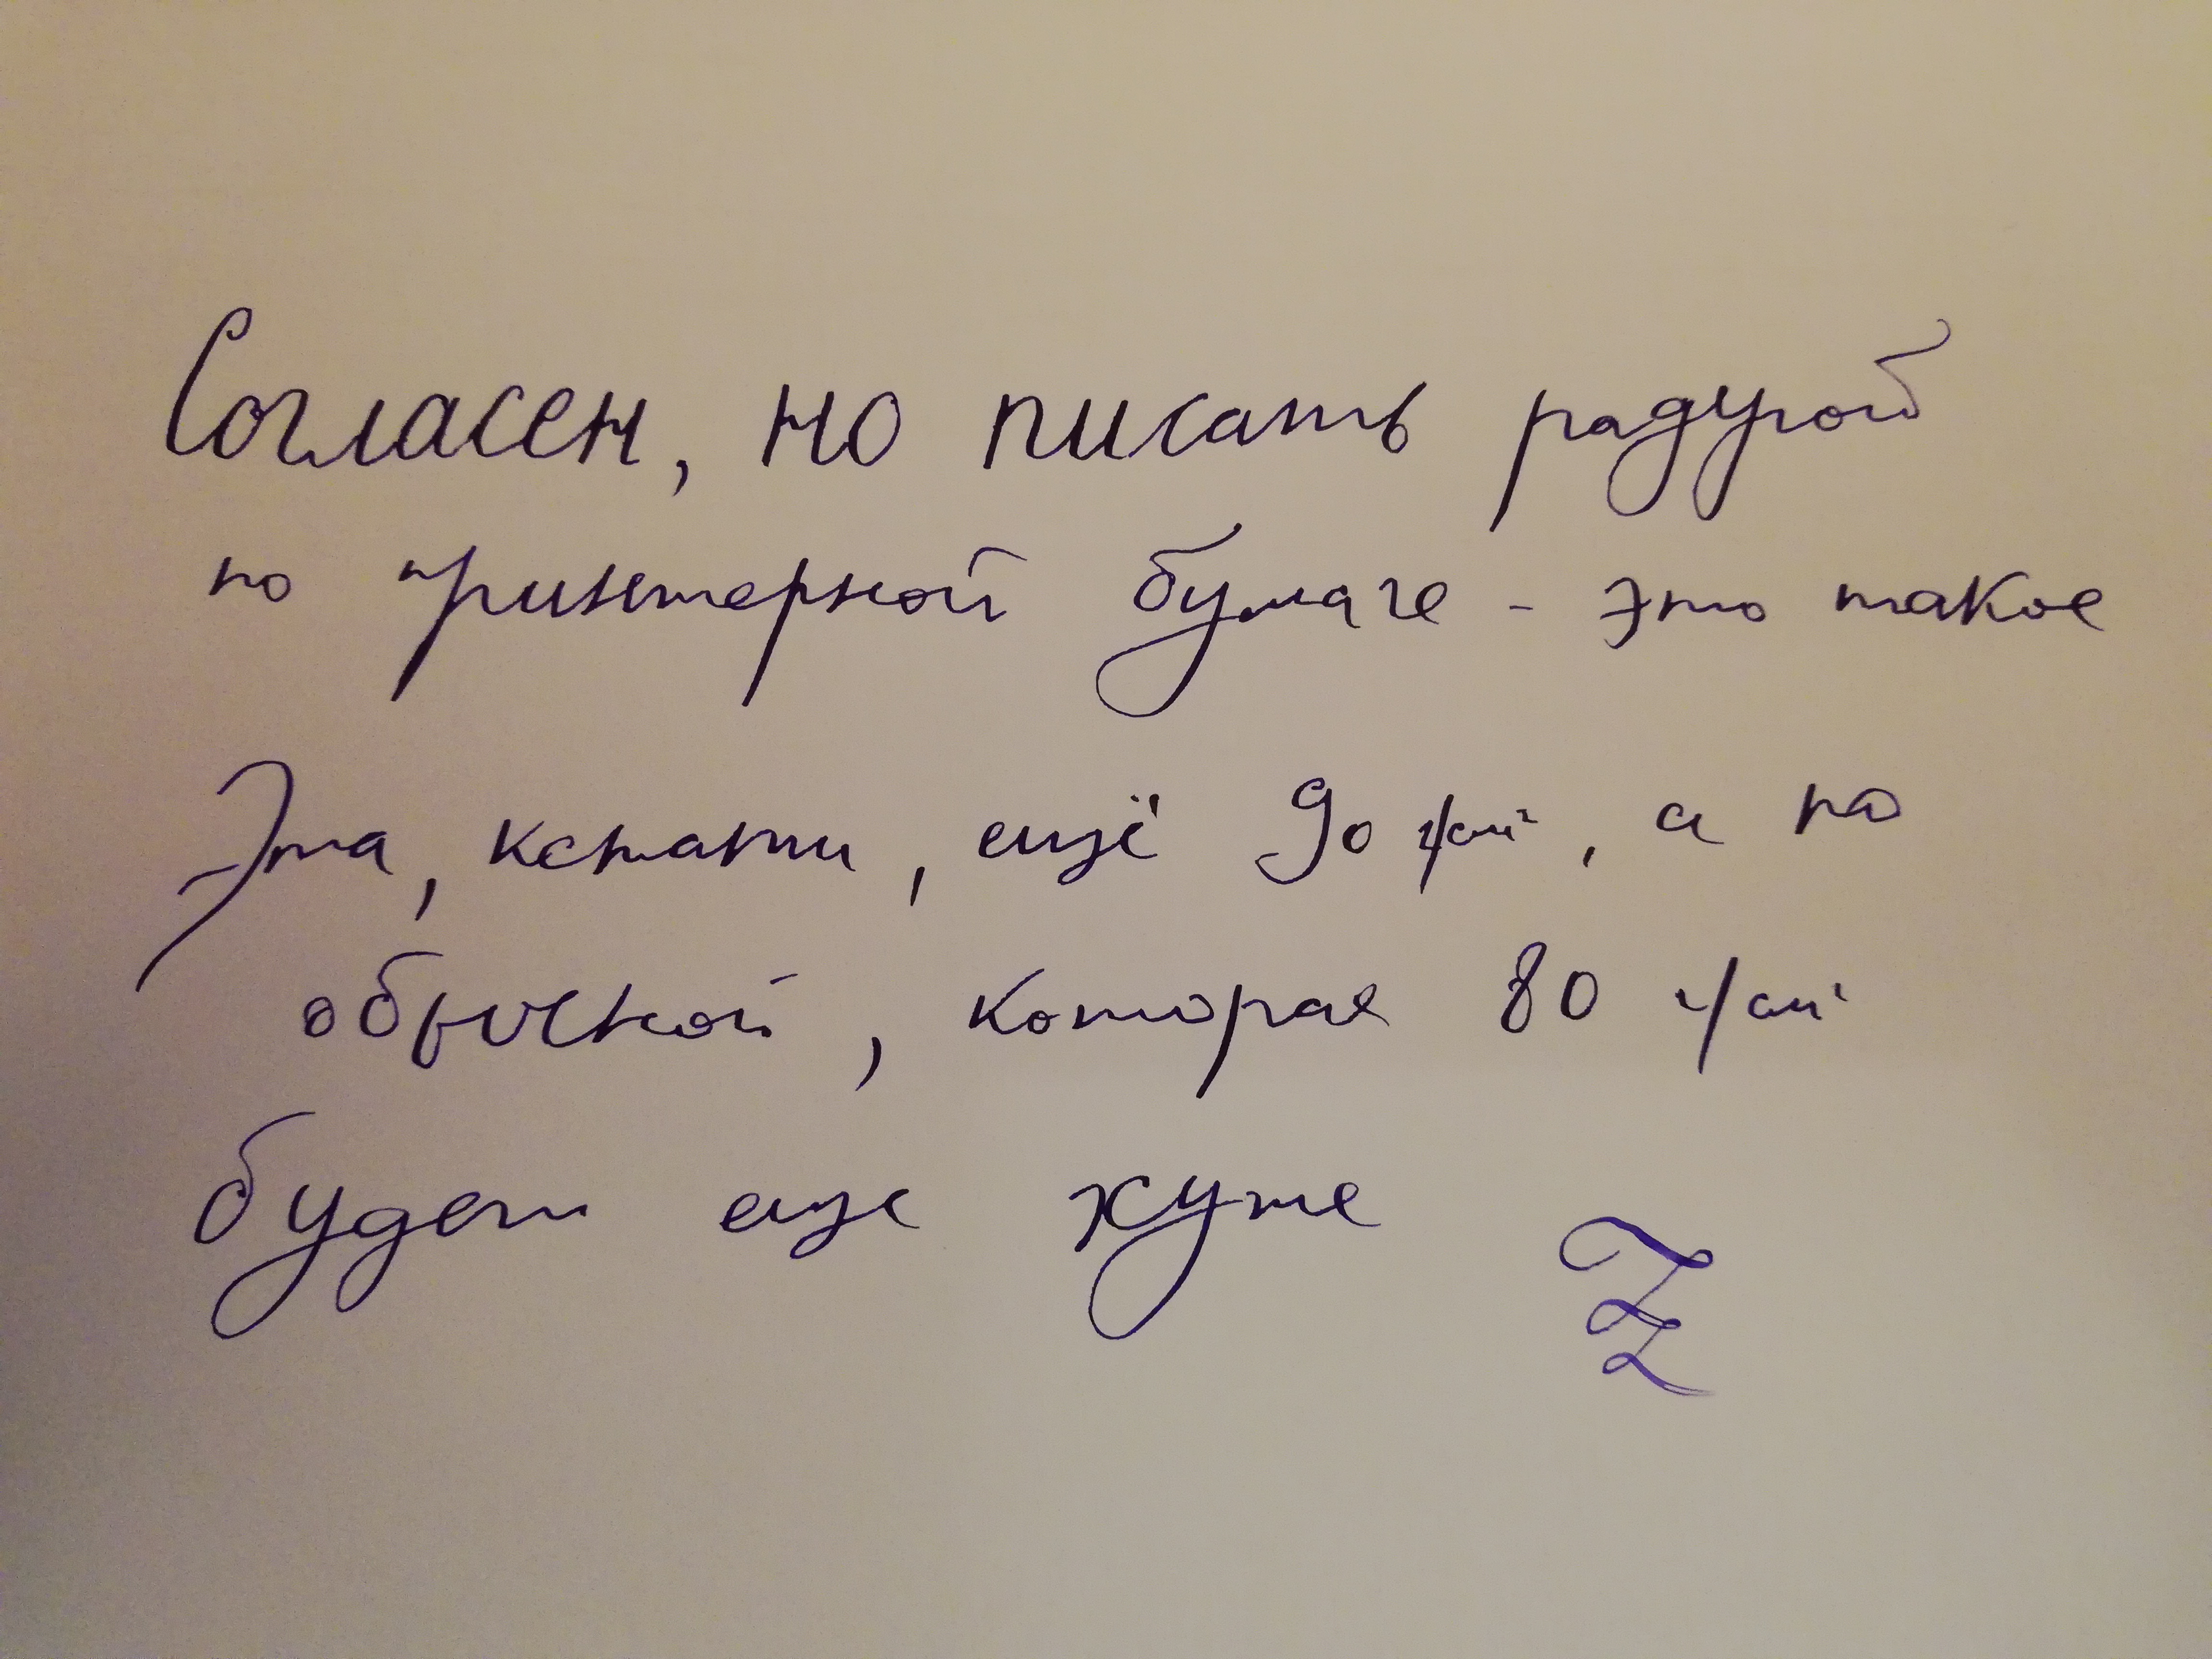 Согласен, но писать радугой
по принтерной бумаге - это такое
Эта, кстати, ещё 90 г/см², а по
обычной, которая 80 г/см²
будет еще хуже